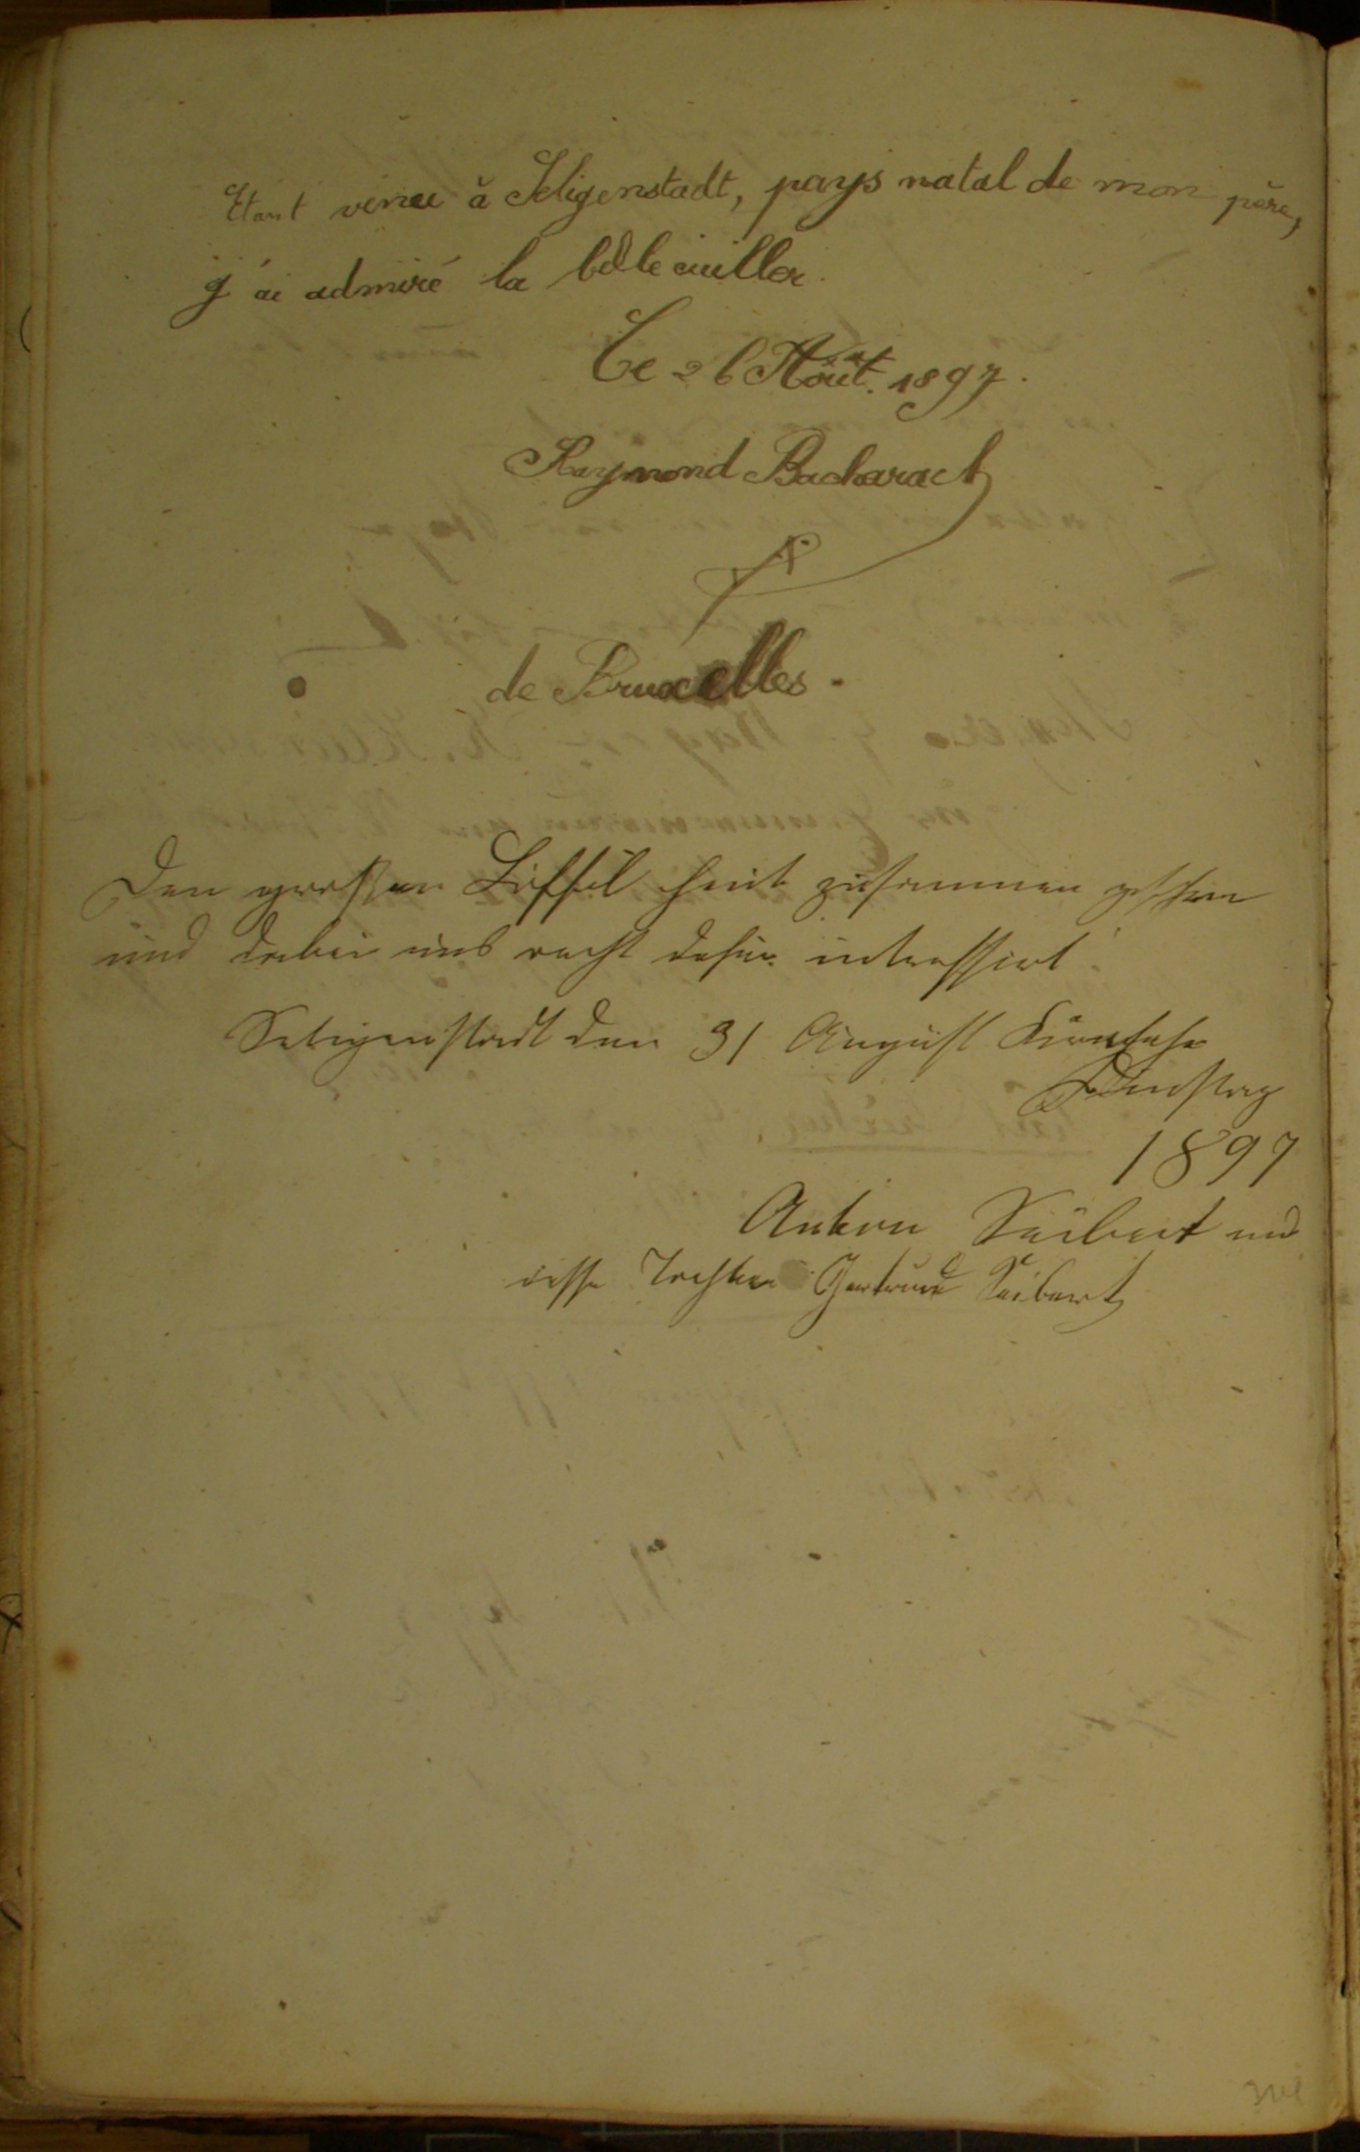 Etant venu à Seligenstadt, pays natal de mon père,
j'ai admiré la belle cuiller.
Ce 26 Août. 1897.
Raymond Bacharach
de Bruxelles.
Den großen Löffel heut zusammen gesehen
und dabei uns recht dafür intressirt.
Seligenstadt den 31 August
Dinstag
1897
Anton Seibert und
desse Tochter Gertrude Seibert